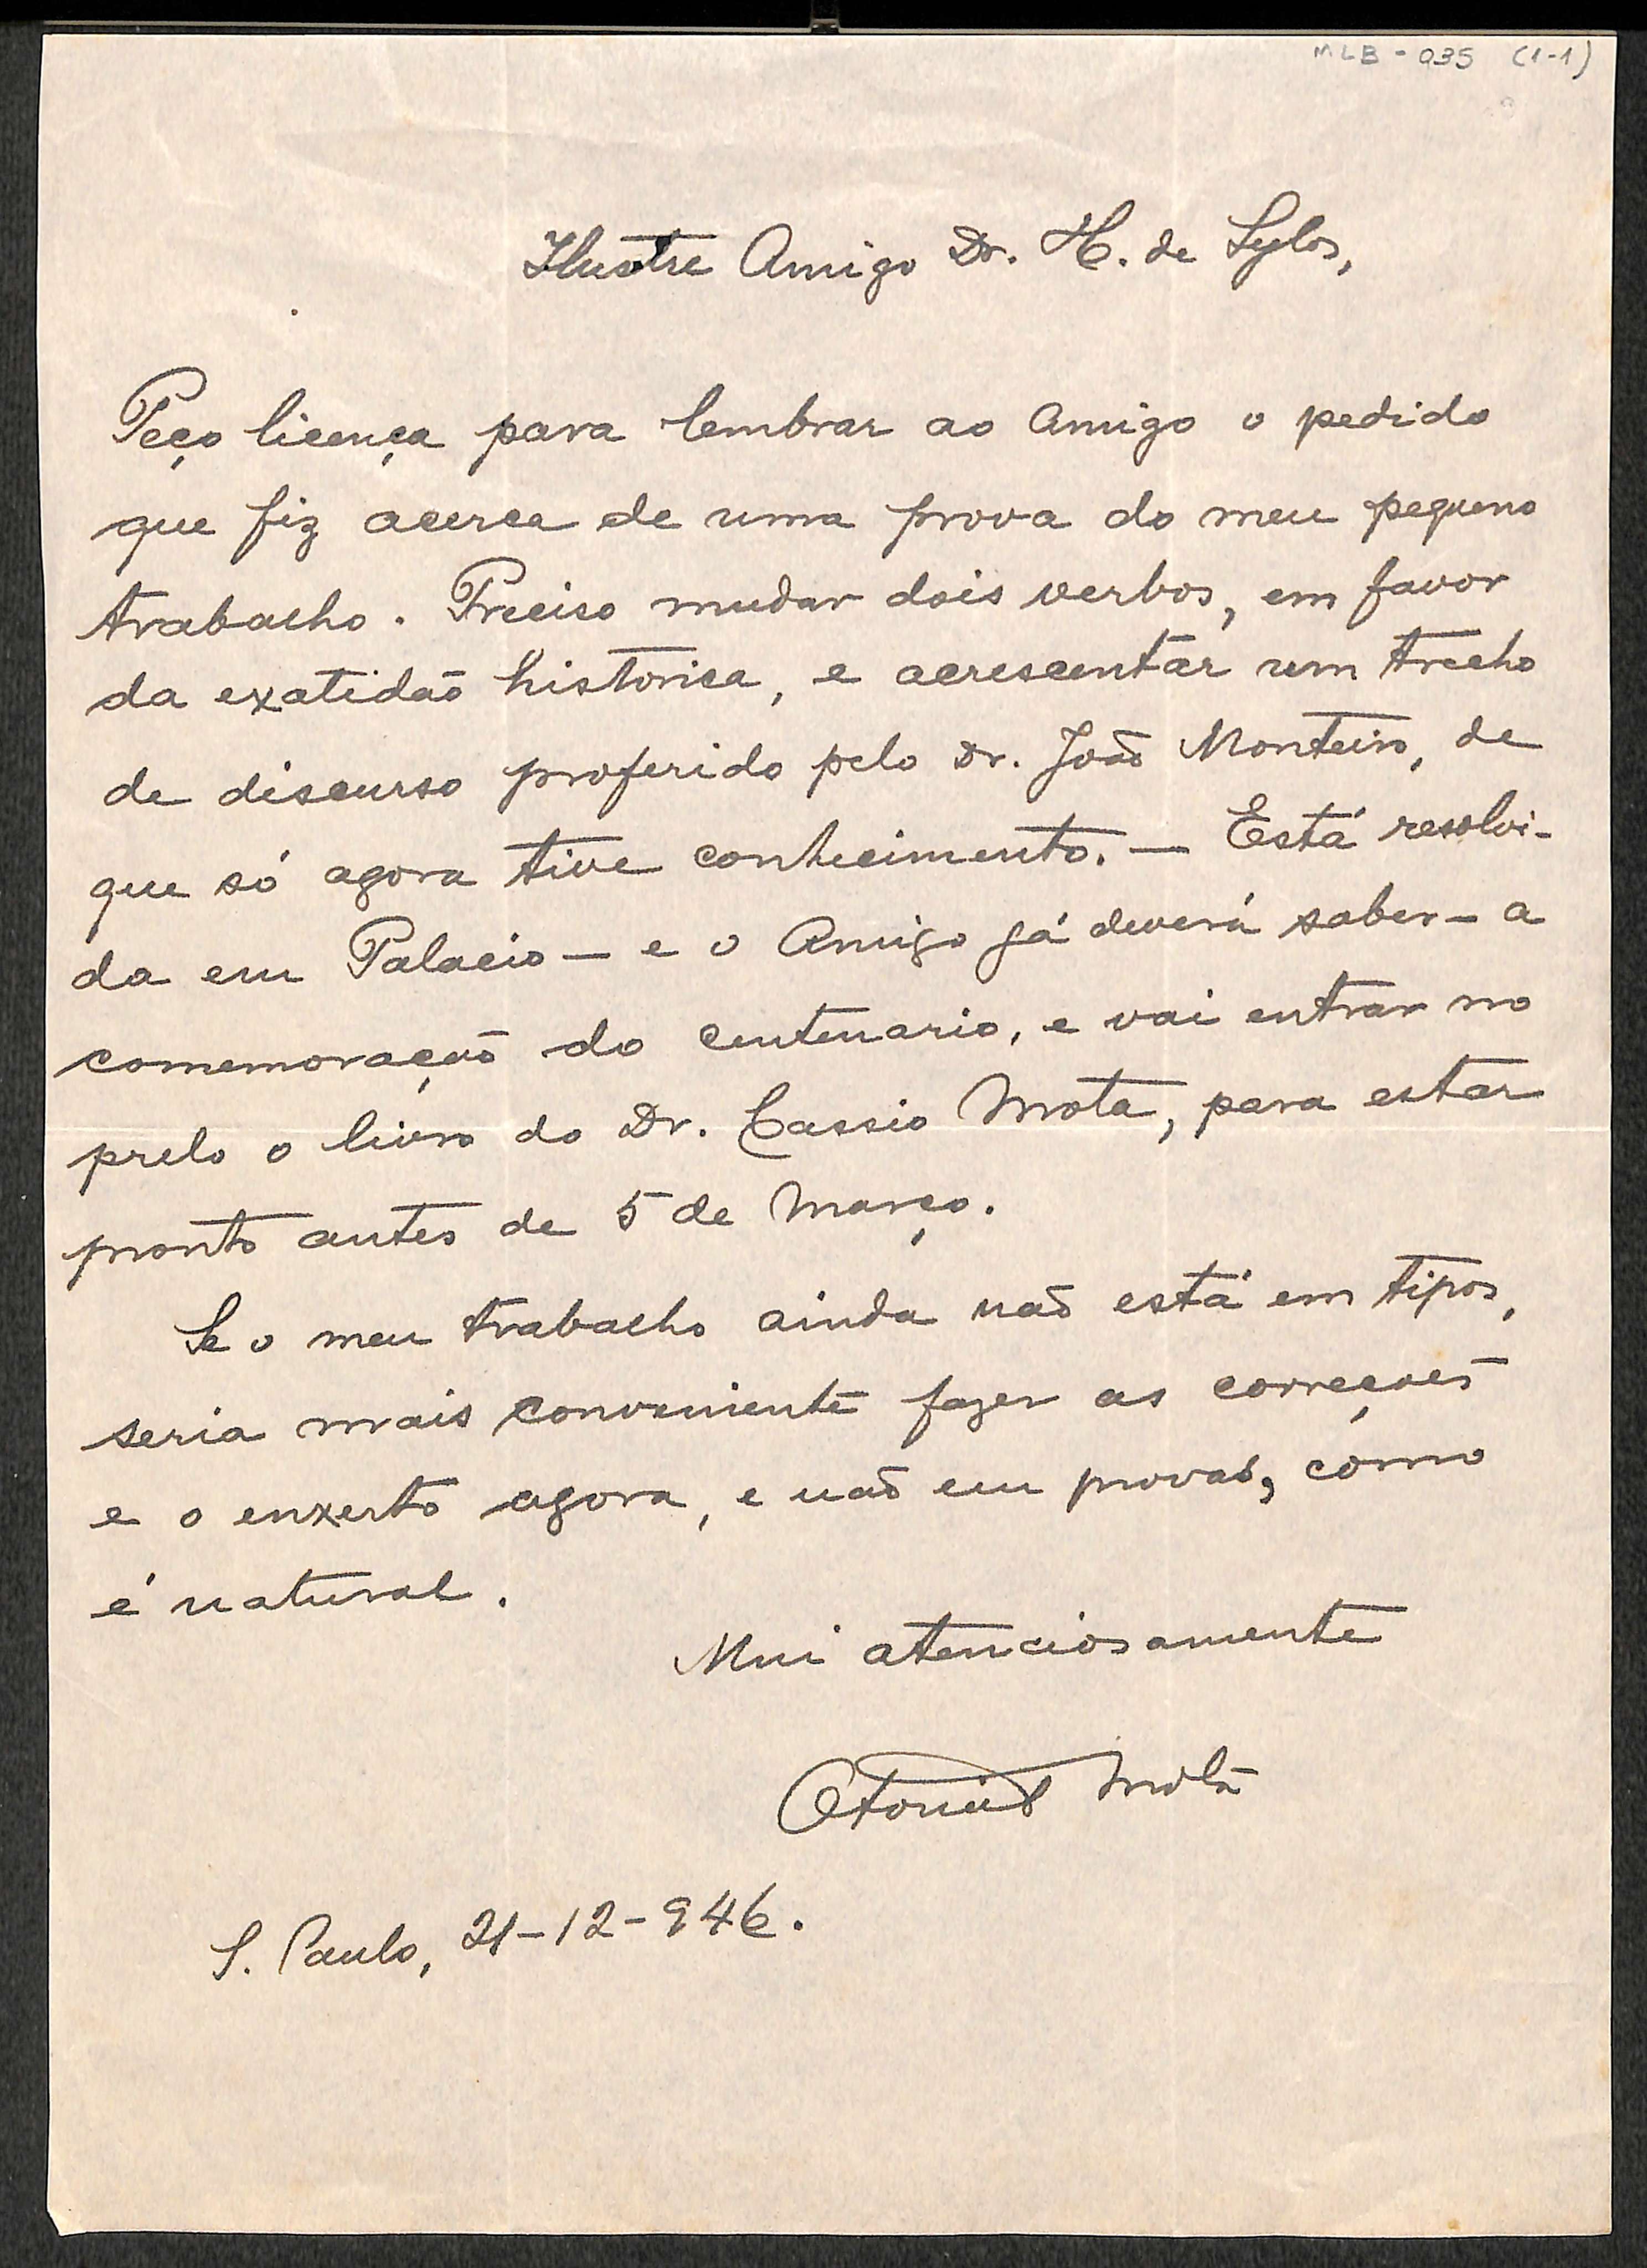 MLB - 035 (1-1)
Ilustre Amigo Dr. H. de Sylos,
Peço licença para lembrar ao Amigo o pedido
que fiz acerca de uma prova do meu pequeno
trabalho. Preciso mudar dois verbos, em favor
da exatidão historica, e acrescentar um trecho
de discurso proferido pelo Dr. João Monteiro, de
que só agora tive conhecimento. — Está resolvi-
da em Palacio — e o Amigo já deverá saber — a
comemoração do centenario, e vai entrar no
prelo o livro do Dr. Cassio Mota, para estar
pronto antes de 5 de Março.
Se o meu trabalho ainda não está em tipos,
seria mais conveniente fazer as correções
e o enxerto agora, e não em provas, como
é natural.
Mui atenciosamente
Otoniel Mota
S. Paulo, 21-12-946.